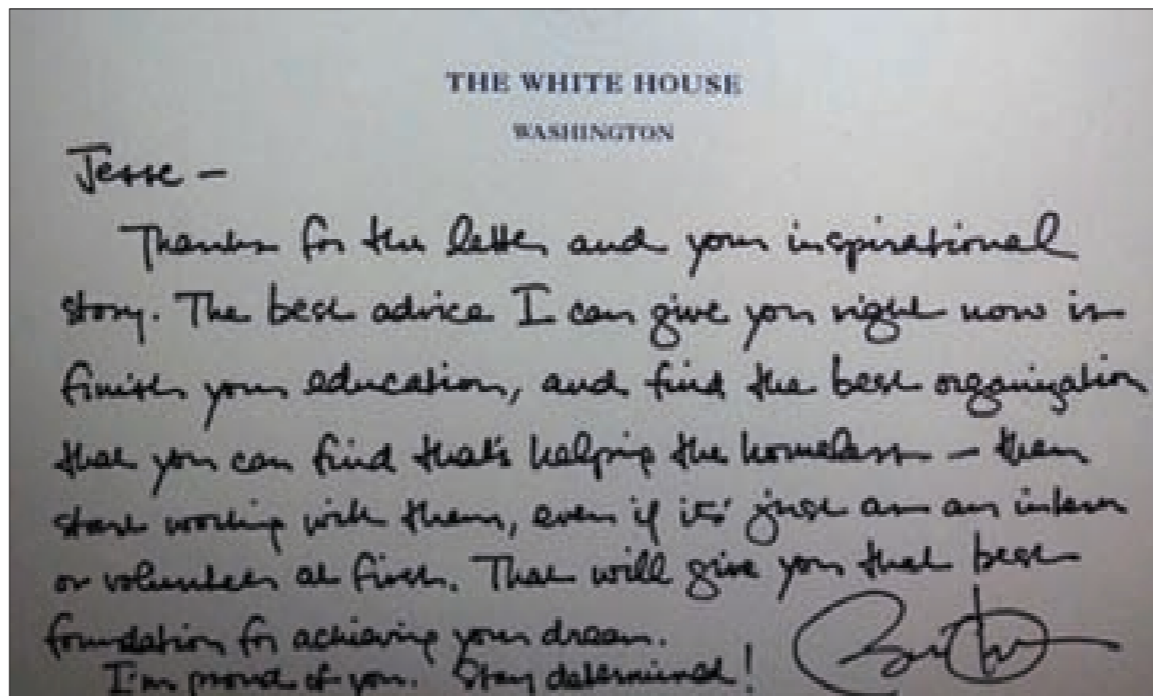 THE WHITE HOUSE
WASHINGTON
Jesse –
Thanks for the letter and your inspirational
story. The best advice I can give you right now is
finish your education, and find the best organization
that you can find that's helping the homeless – then
start working with them, even if its' just as an intern
or volunteer at first. That will give you that best
foundation for achieving your dream.
I'm proud of you. Stay determined!